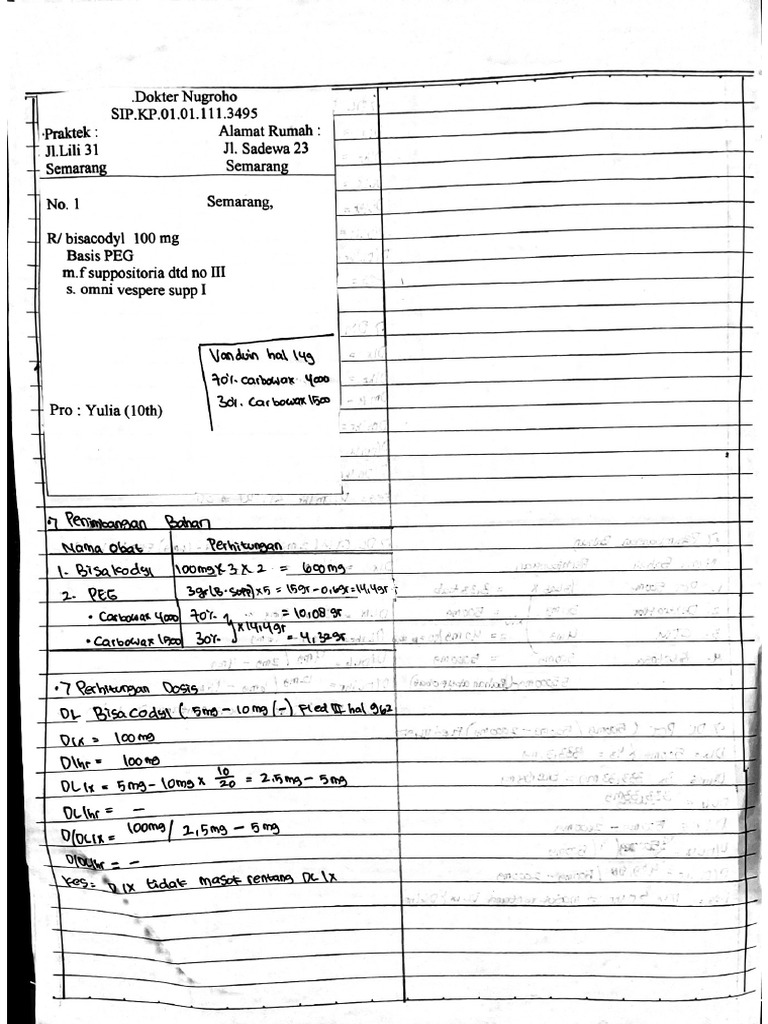 .Dokter Nugroho
SIP.KP.01.01.111.3495
Praktek : Alamat Rumah :
Jl.Lili 31 Jl. Sadewa 23
Semarang Semarang
No. 1 Semarang,
R/ bisacodyl 100 mg
Basis PEG
m.f suppositoria dtd no III
s. omni vespere supp I
Vanduin hal 149
70% carbowax 4000
30% carbowax 1500
Pro : Yulia (10th)
Penimbangan Bahan
Nama Obat Perhitungan
1. Bisakodyl 100mg x 3 x 2 = 600mg
2. PEG 3gr(B.supp) x 5 = 15gr - 0,6gr = 14,4gr
• Carbowax 4000 70% = 10,08 gr
x 14,4gr
• Carbowax 1500 30% = 4,32gr
Perhitungan Dosis
DL Bisacodyl (5mg - 10mg / -) Fied III hal 962
D1x = 100mg
D1hr = 100mg
DL1x = 5mg - 10mg x 10/20 = 2,5mg - 5mg
DL1hr = -
D/DL1x = 100mg / 2,5mg - 5mg
D/DL1hr = -
Kes = D1x tidak masuk rentang DL1x